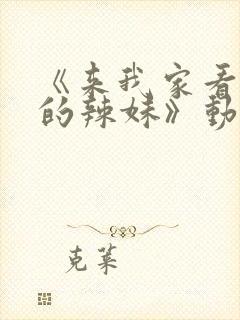 《来我家看
的辣妹》動
克莱